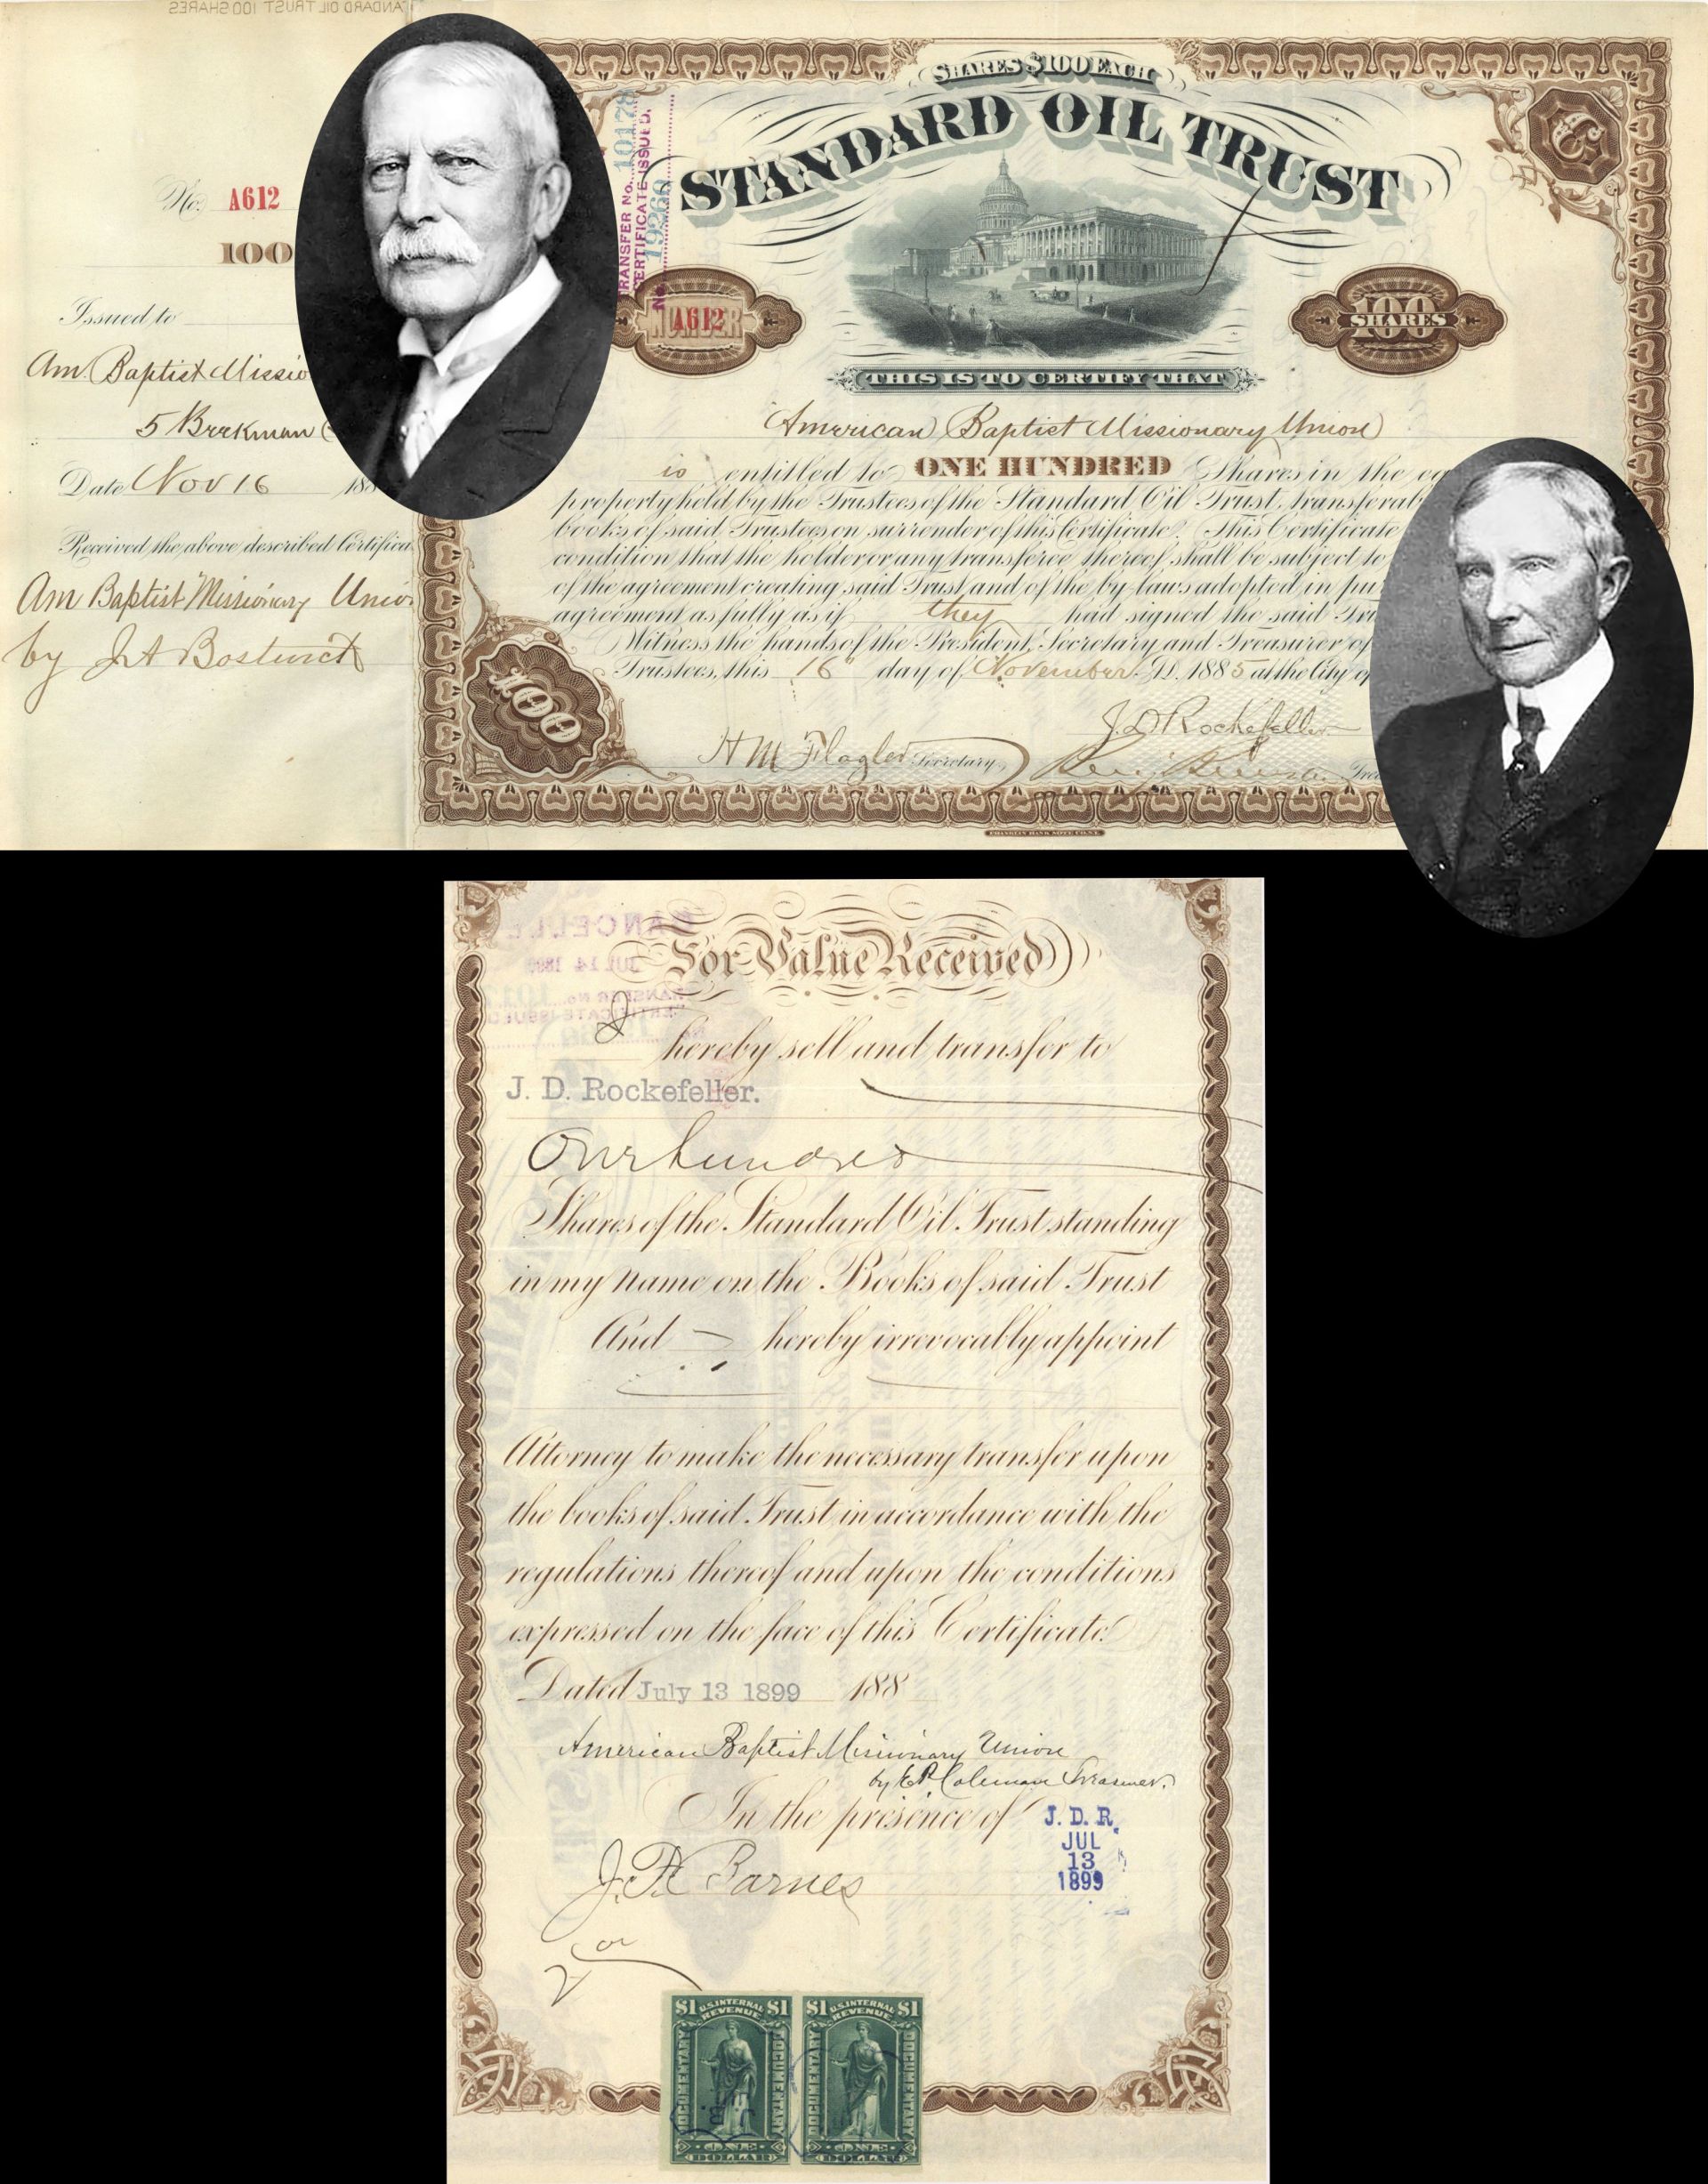 STANDARD OIL TRUST 100 SHARES
No. A612
100
Issued to
Am. Baptist Missio
5 Beekman
Date Nov 16 188
Received the above described Certifica
Am Baptist Missionary Unio
by J A Bostwick
SHARES $100 EACH
STANDARD OIL TRUST
TRANSFER No. 10178
CERTIFICATE ISSUED.
No. 19260
NUMBER
A612
100
SHARES
THIS IS TO CERTIFY THAT
American Baptist Missionary Union
is entitled to ONE HUNDRED Shares in the eq
property held by the Trustees of the Standard Oil Trust, transferab
books of said Trustees on surrender of this Certificate. This Certificate
condition that the holder or any transferee thereof shall be subject to
of the agreement creating said Trust and of the by-laws adopted in pur
agreement as fully as if they had signed the said Tru
Witness the hands of the President, Secretary and Treasurer of
Trustees, this 16 day of November A.D. 1885 at the City of
J. D. Rockefeller
H M Flagler Secretary
Trea
100
FRANKLIN BANK NOTE CO. N.Y.
CANCELLE
JUL 14 1899
TRANSFER No. 101
CERTIFICATE ISSUED
For Value Received
I hereby sell and transfer to
J. D. Rockefeller.
One hundred
Shares of the Standard Oil Trust standing
in my name on the Books of said Trust
And hereby irrevocably appoint
Attorney to make the necessary transfer upon
the books of said Trust in accordance with the
regulations thereof and upon the conditions
expressed on the face of this Certificate
Dated July 13 1899 188
American Baptist Missionary Union
by E. P. Coleman Treasurer.
In the presence of
J. D. R.
JUL
13
1899
Barnes
$1 U.S. INTERNAL REVENUE $1
DOCUMENTARY
DOCUMENTARY
ONE
DOLLAR
$1 U.S. INTERNAL REVENUE $1
DOCUMENTARY
DOCUMENTARY
ONE
DOLLAR